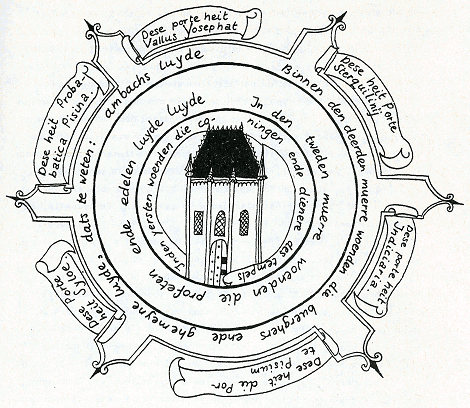 Dese porte heit
Vallus Yosephat
Dese heit Porte
Sterquilinij
Dese porte heit
Indiciaria
Dese heit die Por-
te pisium
Dese Porte
heit Syloe
Dese heit Proba-
batica Pisina.
Binnen den deerden muerre woenden die buerghers ende ghemeyne luyde: dats te weten: ambachs luyde
In den tweden muerre woenden die profeten ende edelen luyde luyde
Inden yersten woenden die co-
ningen ende dienere des tempels